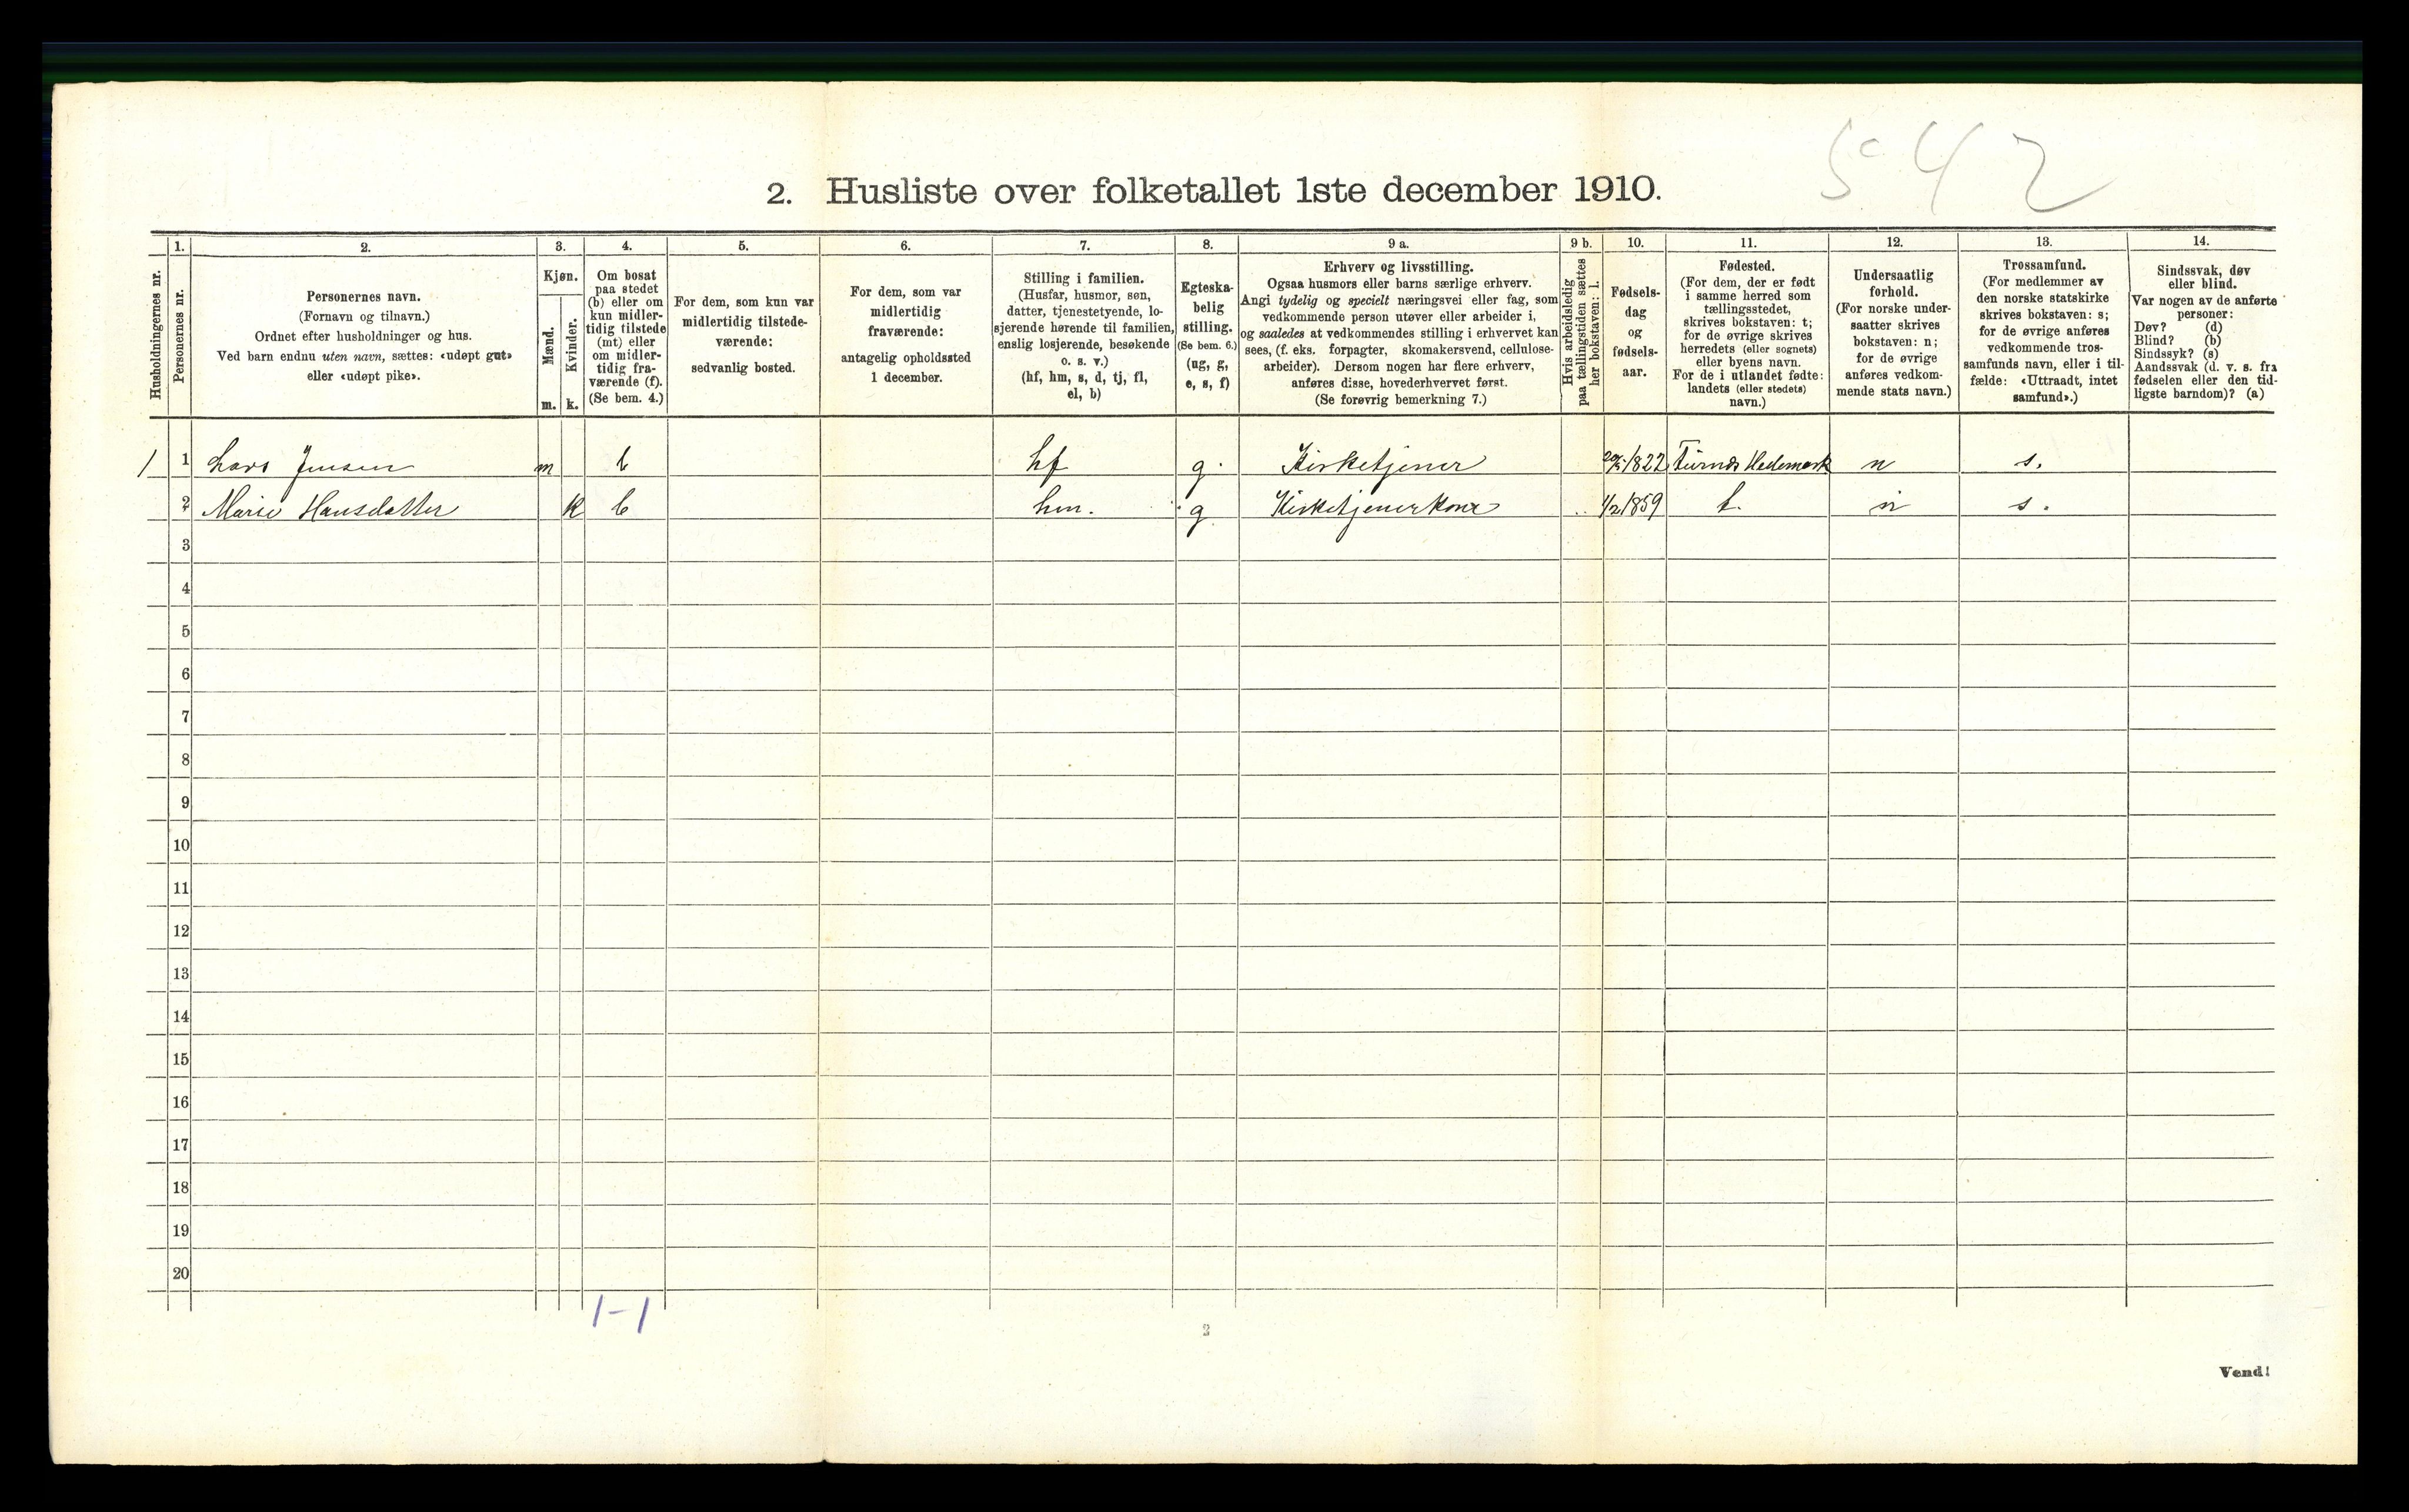 542
2. Husliste over folketallet 1ste december 1910.
Husholdningernes nr.
1.
Personernes nr.
2.
Personernes navn.
(Fornavn og tilnavn.)
Ordnet efter husholdninger og hus.
Ved barn endnu uten navn, sættes: «udøpt gut»
eller «udøpt pike».
3.
Kjøn.
Mænd.
m.
Kvinder.
k.
4.
Om bosat
paa stedet
(b) eller om
kun midler-
tidig tilstede
(mt) eller
om midler-
tidig fra-
værende (f).
(Se bem. 4.)
5.
For dem, som kun var
midlertidig tilstede-
værende:
sedvanlig bosted.
6.
For dem, som var
midlertidig
fraværende:
antagelig opholdssted
1 december.
7.
Stilling i familien.
(Husfar, husmor, søn,
datter, tjenestetyende, lo-
sjerende hørende til familien,
enslig losjerende, besøkende
o. s. v.)
(hf, hm, s, d, tj, fl,
el, b)
8.
Egteska-
belig
stilling.
(Se bem. 6.)
(ug, g,
e, s, f)
9 a.
Erhverv og livsstilling.
Ogsaa husmors eller barns særlige erhverv.
Angi tydelig og specielt næringsvei eller fag, som
vedkommende person utøver eller arbeider i,
og saaledes at vedkommendes stilling i erhvervet kan
sees, (f. eks. forpagter, skomakersvend, cellulose-
arbeider). Dersom nogen har flere erhverv,
anføres disse, hovederhvervet først.
(Se forøvrig bemerkning 7.)
9 b.
Hvis arbeidsledig
paa tællingstiden sættes
her bokstaven: l.
10.
Fødsels-
dag
og
fødsels-
aar.
11.
Fødested.
(For dem, der er født
i samme herred som
tællingsstedet,
skrives bokstaven: t;
for de øvrige skrives
herredets (eller sognets)
eller byens navn.
For de i utlandet fødte:
landets (eller stedets)
navn.)
12.
Undersaatlig
forhold.
(For norske under-
saatter skrives
bokstaven: n;
for de øvrige
anføres vedkom-
mende stats navn.)
13.
Trossamfund.
(For medlemmer av
den norske statskirke
skrives bokstaven: s;
for de øvrige anføres
vedkommende tros-
samfunds navn, eller i til-
fælde: «Uttraadt, intet
samfund».)
14.
Sindssvak, døv
eller blind.
Var nogen av de anførte
personer:
Døv? (d)
Blind? (b)
Sindssyk? (s)
Aandssvak (d. v. s. fra
fødselen eller den tid-
ligste barndom)? (a)
1 1 Lars Jensen m b hf g. Kirketjener /1822 Furnes Hedemark n s.
2 Marie Hansdatter k b hm. g Kirketjenerkone 1/2 1859 t. n s.
3
4
5
6
7
8
9
10
11
12
13
14
15
16
17
18
19
20
1-1
2
Vend!